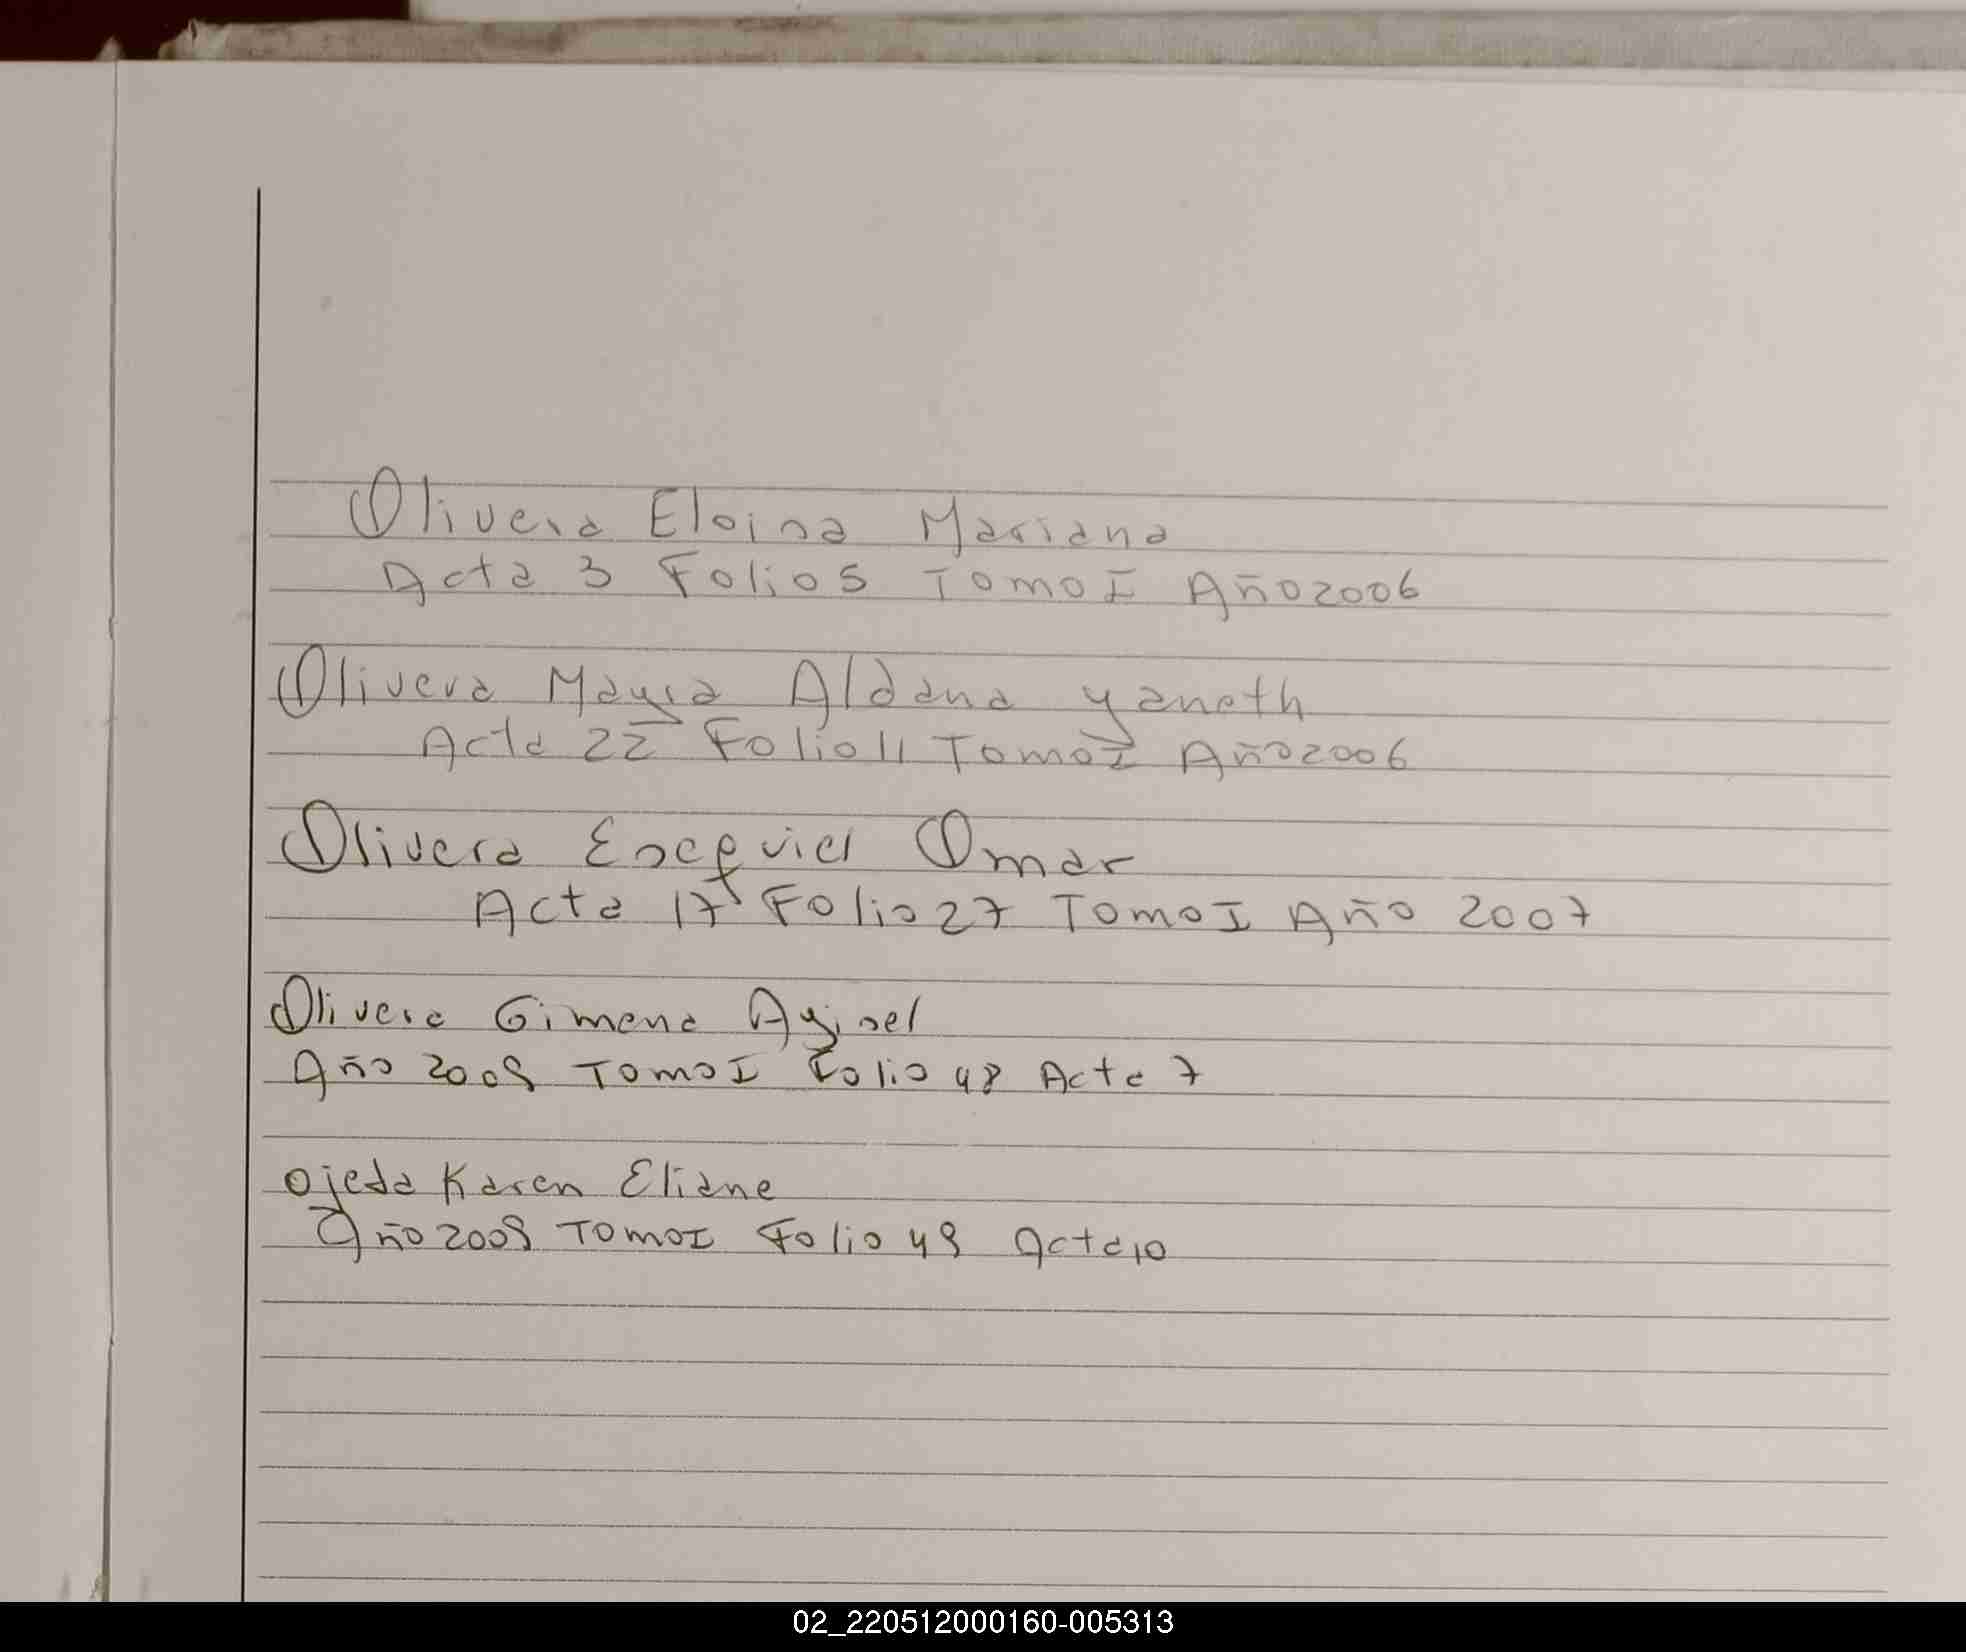 Olivera Eloisa Mariana
Acta 3 Folio 5 Tomo I Año 2006
Olivera Mayra Aldana Yaneth
Acta 22 Folio 11 Tomo I Año 2006
Olivera Esequiel Omar
Acta 17 Folio 27 Tomo I Año 2007
Olivera Gimena Ayisel
Año 2009 Tomo I Folio 48 Acta 7
Ojeda Karen Eliane
Año 2009 Tomo I Folio 49 Acta 10
02_220512000160-005313